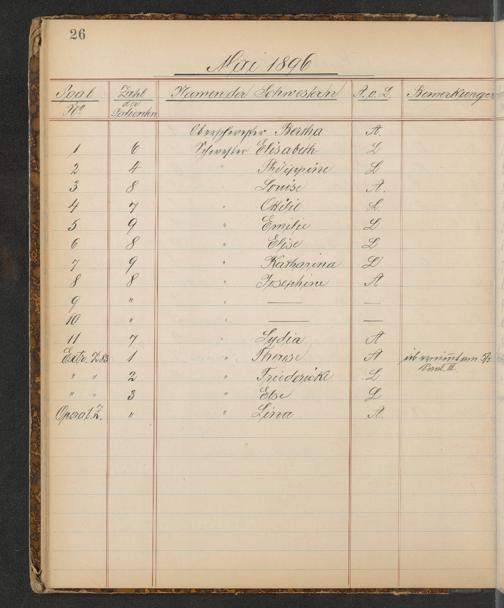 26
Mai 1896
Saal No. Zahl der Patienten Namen der Schwestern A. o. L. Bemerkungen
Oberschwester Bertha A.
1 6 Schwester Elisabeth L
2 4 " Philippine L
3 8 " Louise A.
4 7 " Ottilie L
5 9 " Emilie L
6 8 " Elise L
7 9 " Katharina L
8 8 " Josephine A
9 " " — —
10 " " — —
11 7 " Lydia A
Extr. Z. No 1 " Therese A
" " 2 " Friedericke L
" " 3 " Else L
Operat. Z. " " Lina A.